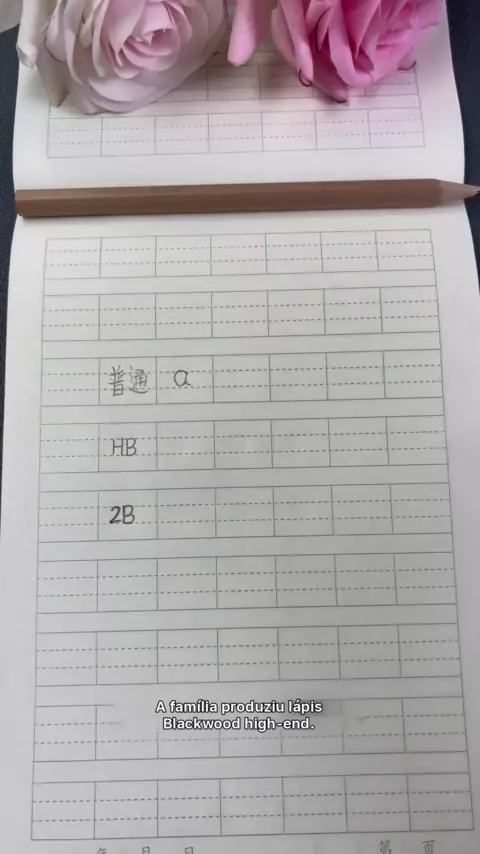 普通 a
HB
2B
A família produziu lápis
Blackwood high-end.
年 月 日 第 页